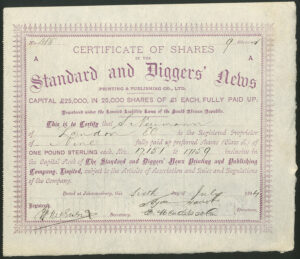 CERTIFICATE OF SHARES
IN THE
A Standard and Diggers' News A
PRINTING & PUBLISHING CO., LTD.
CAPITAL £25,000, IN 25,000 SHARES OF £1 EACH, FULLY PAID UP.
Registered under the Limited Liability Laws of the South African Republic.
This is to Certify that S. Neumann
of London EC is the Registered Proprietor
of Nine fully paid up preferred shares (Class A.) of
ONE POUND STERLING each, Nos. 17151 to 17159 inclusive in
the Capital Stock of The Standard and Diggers' News Printing and Publishing
Company, Limited, subject to the Articles of Association and Rules and Regulations
of the Company.
Dated at Johannesburg, this Sixth day July